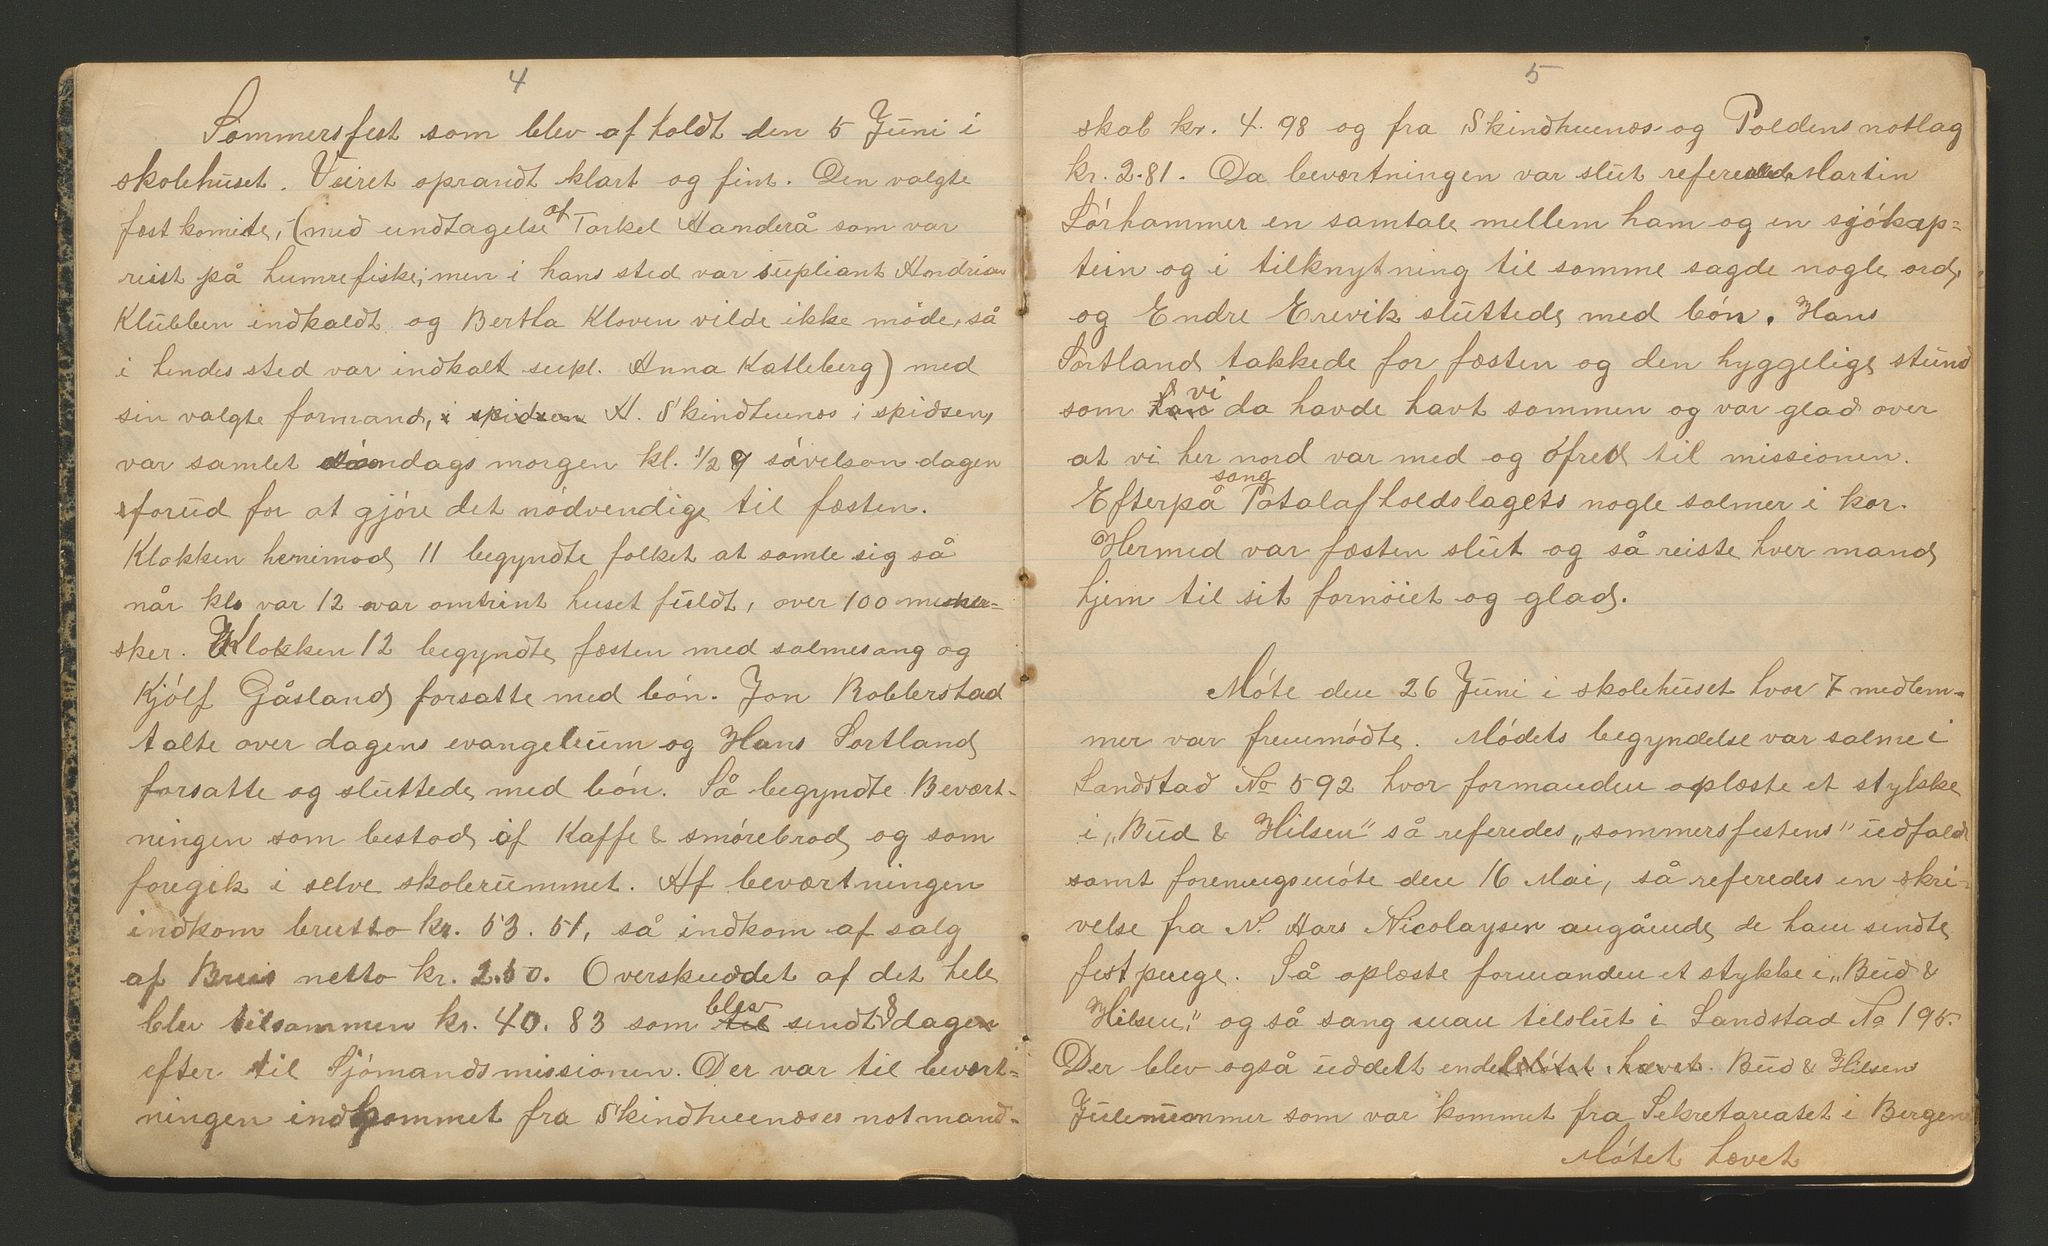 4
Sommersfest som blev afholdt den 5 Juni i
skolehuset. Veiret oprandt klart og fint. Den valgte
fæst komite, (med undtagelse af Torkel Handerå som var
reist på humrefiske; men i hans sted var supliant Andrias
Klubben indkaldt og Bertha Kloven vilde ikke møde, så
i hendes sted var indkalt supl. Anna Katleberg) med
sin valgte formand, i spidsen A. Skindhuenæs i spidsen,
var samlet søndags morgen kl. 1/2 9 såvelson dagen
forud for at gjóre det nødvendige til fæsten.
Klokken henimod 11 begyndte folket at samle sig så
når klo var 12 var omtrint huset fuldt, over 100 mennes=
sker. Klokken 12 begyndte fæsten med salmesang og
Kjólf Gåsland forsatte med bón. Jon Robberstad
talte over dagens evangelium og Hans Sortland
forsatte og sluttede med bón. Så begyndte Bevært-
ningen som bestod af Kaffe & smórebrod og som
foregik i selve skolerummet. Af beværtningen
indkom brutto kr. 53.51, så indkom af salg
af Brus netto kr. 2.50. Overskuddet af det hele
blev tilsammen kr. 40.83 som til blev sendt 8 dagen
efter til Sjómandsmissionen. Der var til bevært=
ningen indkommet fra Skindhuenæses notmand=
5
skab kr. 4.98 og fra Skindhuenæs og Poldens notlag
kr. 2.81. Da beværtningen var slut refererede Martin
Sórhammer en samtale mellem ham og en sjókap=
tein og i tilknytning til somme sagde nogle ord,
og Endre Erevik sluttede med bón. Hans
Sortland takkede for fæsten og den hyggelige stund
som vi da havde havt sammen og var glad over
at vi her nord var med og ófred til missionen.
Efterpå sang Totalafholdslagets nogle salmer i kor.
Hermed var fæsten slut og så reiste hver mand
hjem til sit fornöiet og glad.
Móte den 26 Juni i skolehuset hvor 7 medlem=
mer var fremmódte. Módets begyndelse var salme i
Landstad No 592 hvor formanden oplæste et stykke
i „Bud & Hilsen" så referedes „sommersfestens" udfald
samt foreningsmóte den 16 Mai, så referedes en skri-
velse fra N. Aars Nicolaysen angående de ham sendte
festpenge. Så oplæste formanden et stykke i „Bud &
Hilsen", og så sang man tilslut i Landstad No 195.
Der blev også uddelt endel Mótet hævet. Bud & Hilsens
Julenummer som var kommet fra Sekretareatet i Bergen
Mótet hævet